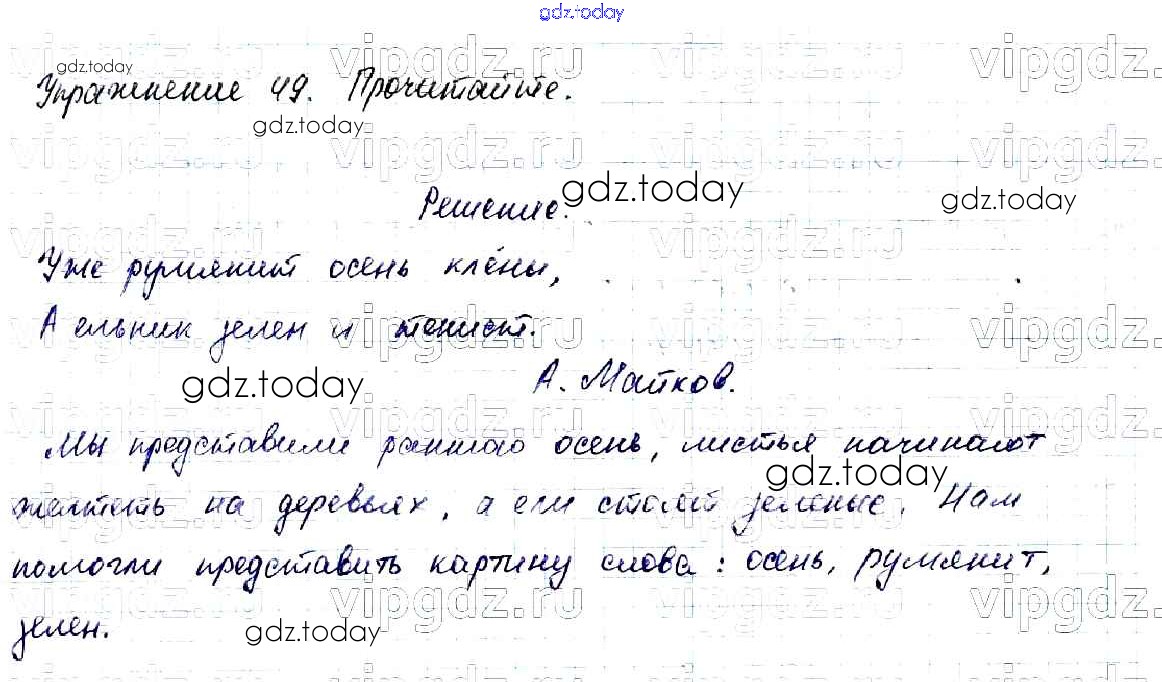 gdz.today
vipgdz.ru vipgdz.ru vipgdz.ru vipgdz.ru
gdz.today
Упражнение 49. Прочитайте.
gdz.today
vipgdz.ru vipgdz.ru vipgdz.ru vipgdz.ru
Решение.
gdz.today
gdz.today
vipgdz.ru vipgdz.ru vipgdz.ru vipgdz.ru
Уже румянит осень клёны,
А ельник зелен и тенист.
vipgdz.ru vipgdz.ru vipgdz.ru vipgdz.ru
gdz.today
А. Майков.
vipgdz.ru vipgdz.ru vipgdz.ru vipgdz.ru
Мы представили раннюю осень, листья начинают
gdz.today
желтеть на деревьях, а ели стоят зеленые. Нам
vipgdz.ru vipgdz.ru vipgdz.ru vipgdz.ru
помогли представить картину слова: осень, румянит,
vipgdz.ru vipgdz.ru vipgdz.ru vipgdz.ru
зелен.
gdz.today